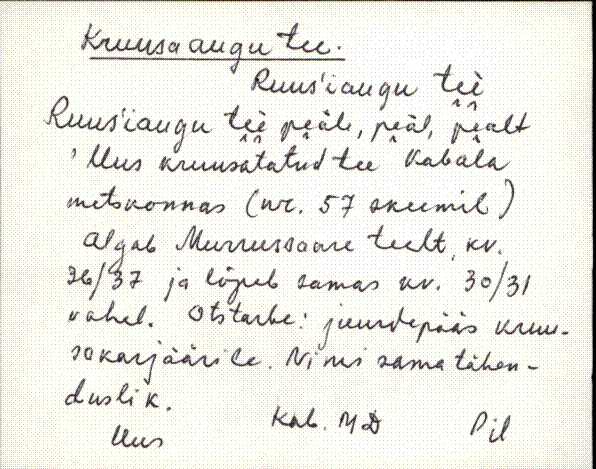 Kruusaaugu tee.
Ruus'iaugu tèè
Ruus'iaugu tèè peäle, peäl, peält
Uus kruusatatud tee Kabala
metskonnas (nr. 57 skeemil)
algab Murrussaare teelt, kv.
36/37 ja lõpeb samas kv. 30/31
vahel. Otstarbe: juurdepääs kruu-
sakarjäärile. Nimi samatähen-
duslik.
Uus Kab. MD Pil